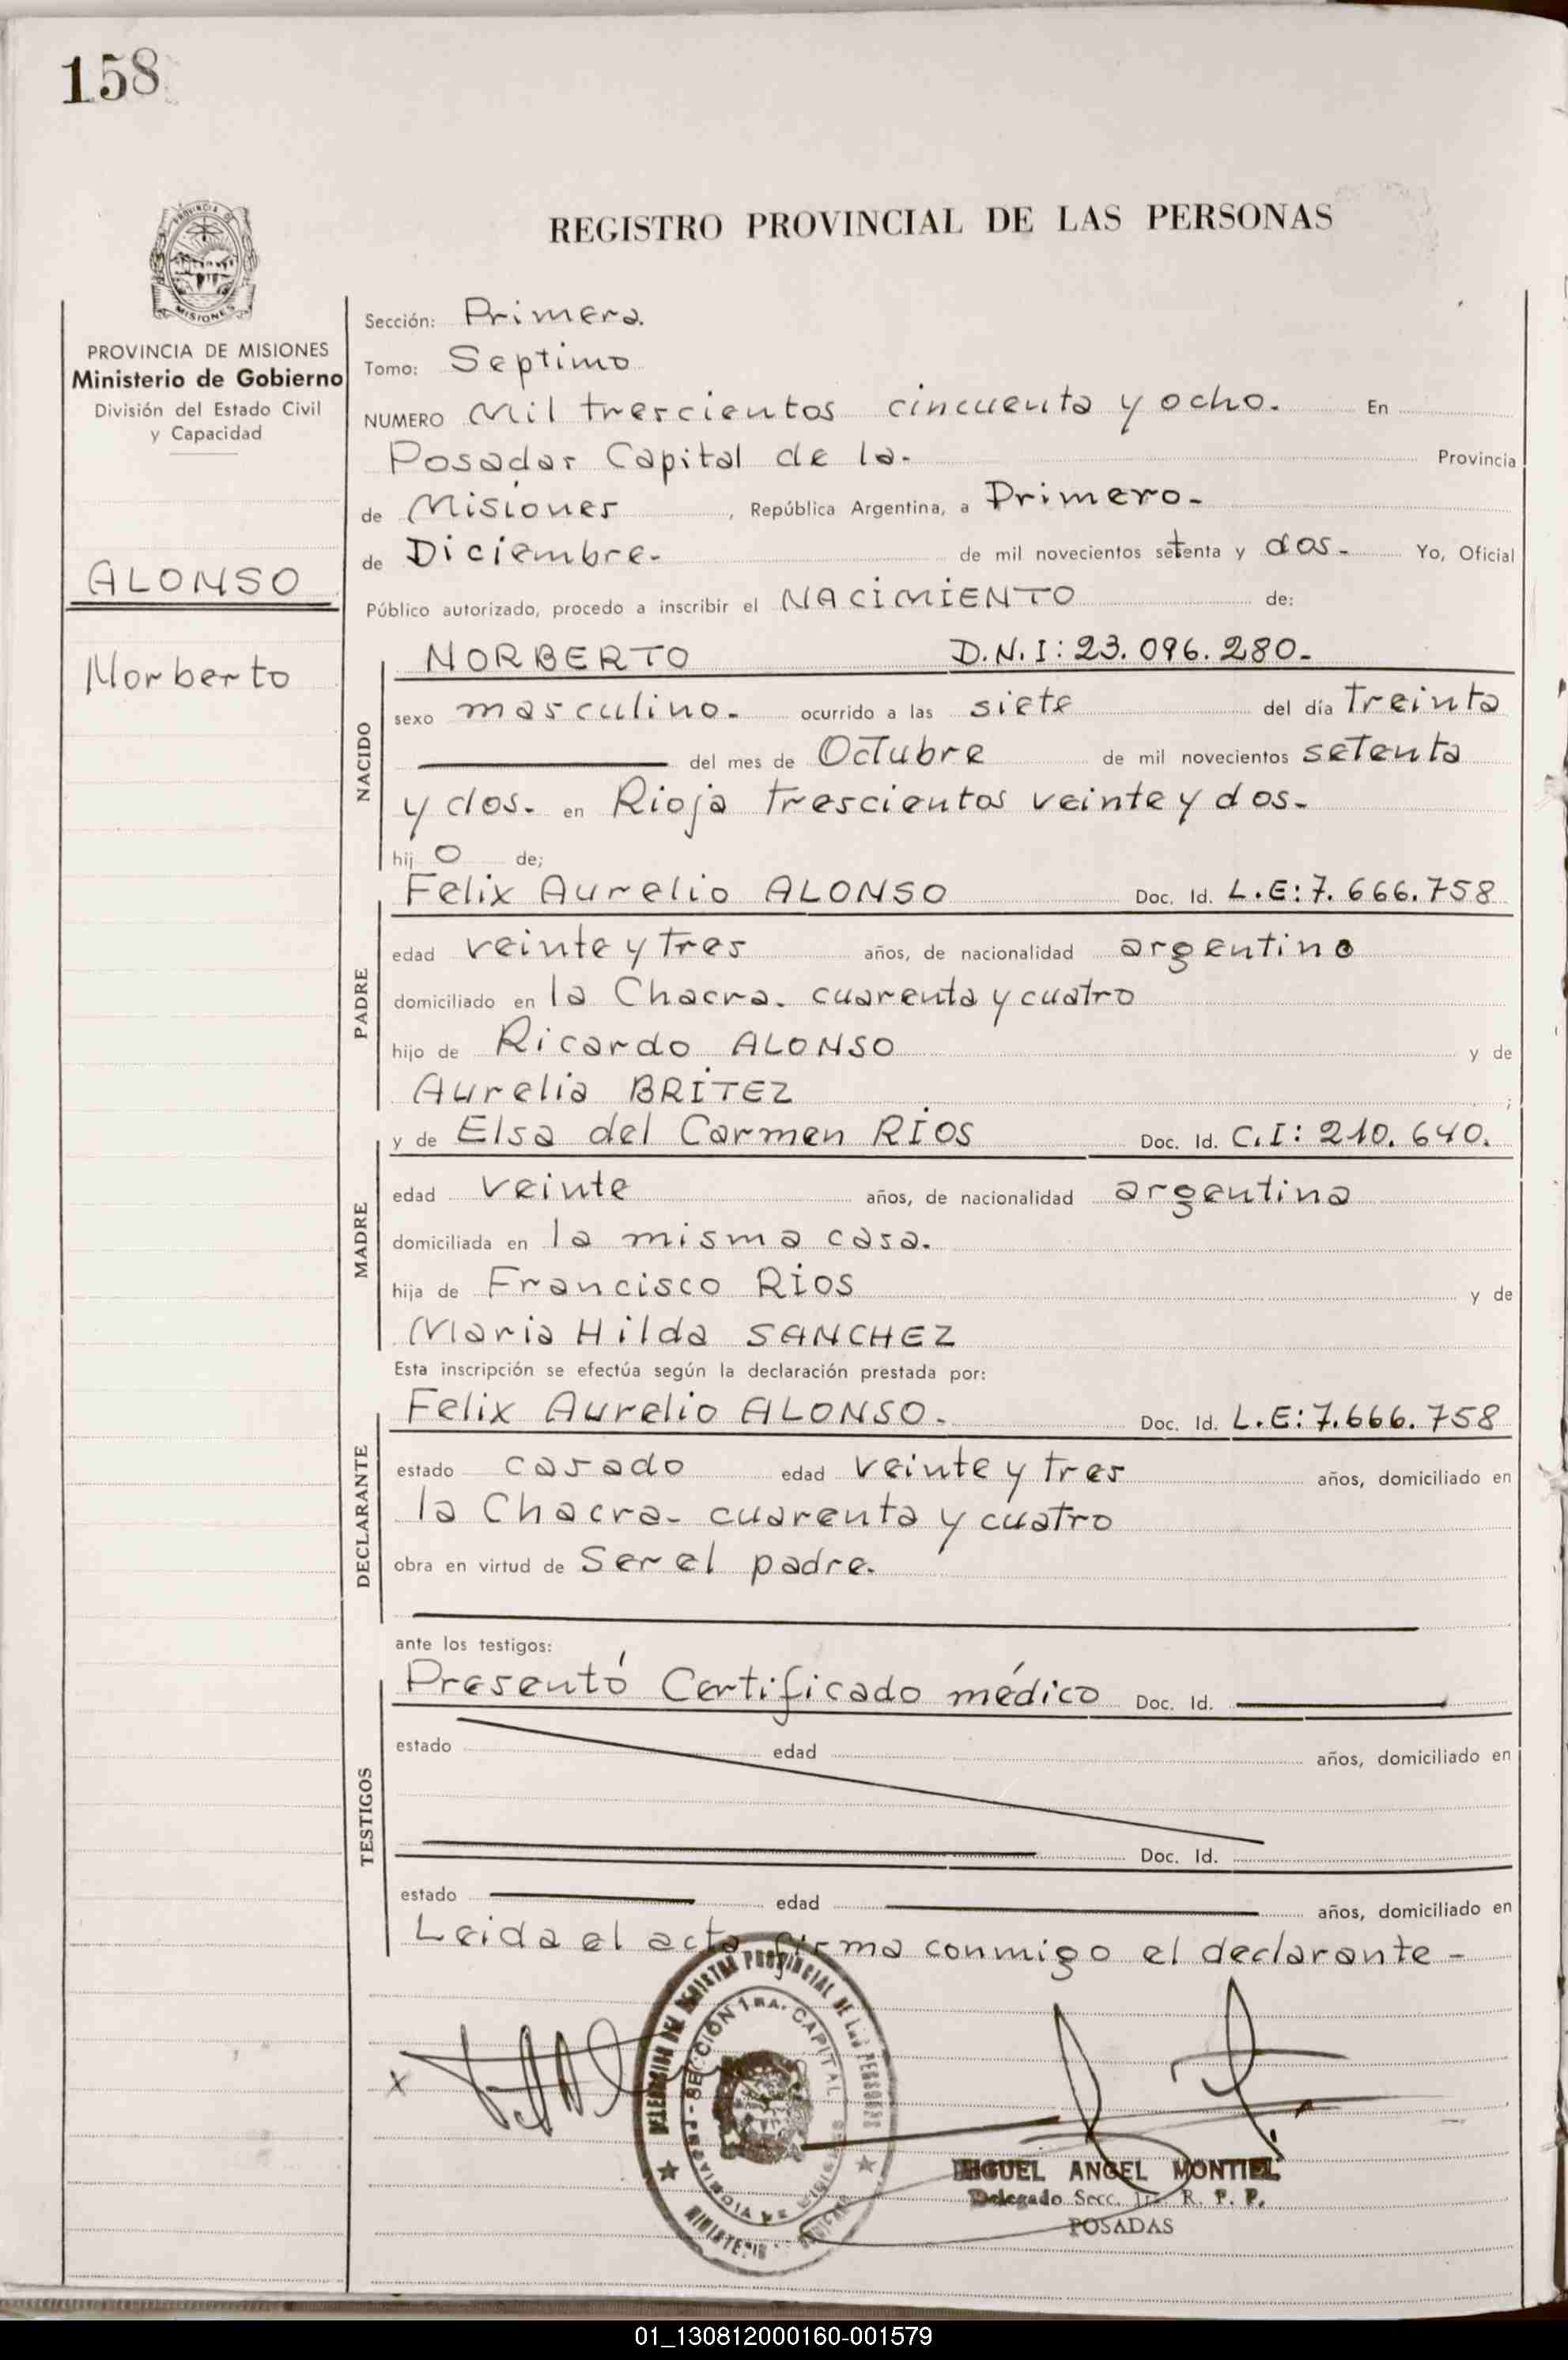 158
PROVINCIA DE
MISIONES
PROVINCIA DE MISIONES
Ministerio de Gobierno
División del Estado Civil
y Capacidad
ALONSO
Norberto
REGISTRO PROVINCIAL DE LAS PERSONAS
Sección: Primera.
Tomo: Septimo
NUMERO Mil trescientos cincuenta y ocho. En
Posadas Capital de la. Provincia
de Misiones, República Argentina, a Primero-
de Diciembre- de mil novecientos setenta y dos- Yo, Oficial
Público autorizado, procedo a inscribir el NACIMIENTO de:
NACIDO
NORBERTO D.N.I: 23.096.280-
sexo masculino- ocurrido a las siete del día treinta
del mes de Octubre de mil novecientos setenta
y dos- en Rioja trescientos veinte y dos-
hij o de;
PADRE
Felix Aurelio ALONSO Doc. Id. L.E: 7.666.758
edad veinte y tres años, de nacionalidad argentino
domiciliado en la Chacra. cuarenta y cuatro
hijo de Ricardo ALONSO y de
Aurelia BRITEZ ;
MADRE
y de Elsa del Carmen RIOS Doc. Id. C.I: 210.640.
edad veinte años, de nacionalidad argentina
domiciliada en la misma casa.
hija de Francisco RIOS y de
Maria Hilda SANCHEZ
Esta inscripción se efectúa según la declaración prestada por:
DECLARANTE
Felix Aurelio ALONSO- Doc. Id. L.E: 7.666.758
estado casado edad veinte y tres años, domiciliado en
la Chacra- cuarenta y cuatro
obra en virtud de Ser el padre.
ante los testigos:
TESTIGOS
Presentó Certificado médico Doc. Id.
estado edad años, domiciliado en
Doc. Id.
estado edad años, domiciliado en
Leida el acta firma conmigo el declarante-
x
DELEGACION DEL REGISTRO PROVINCIAL DE LAS PERSONAS
SECCION 1RA. CAPITAL
PROVINCIA DE MISIONES
MINISTERIO
MIGUEL ANGEL MONTIEL
Delegado Secc. 1ra R. P. P.
POSADAS
01_130812000160-001579